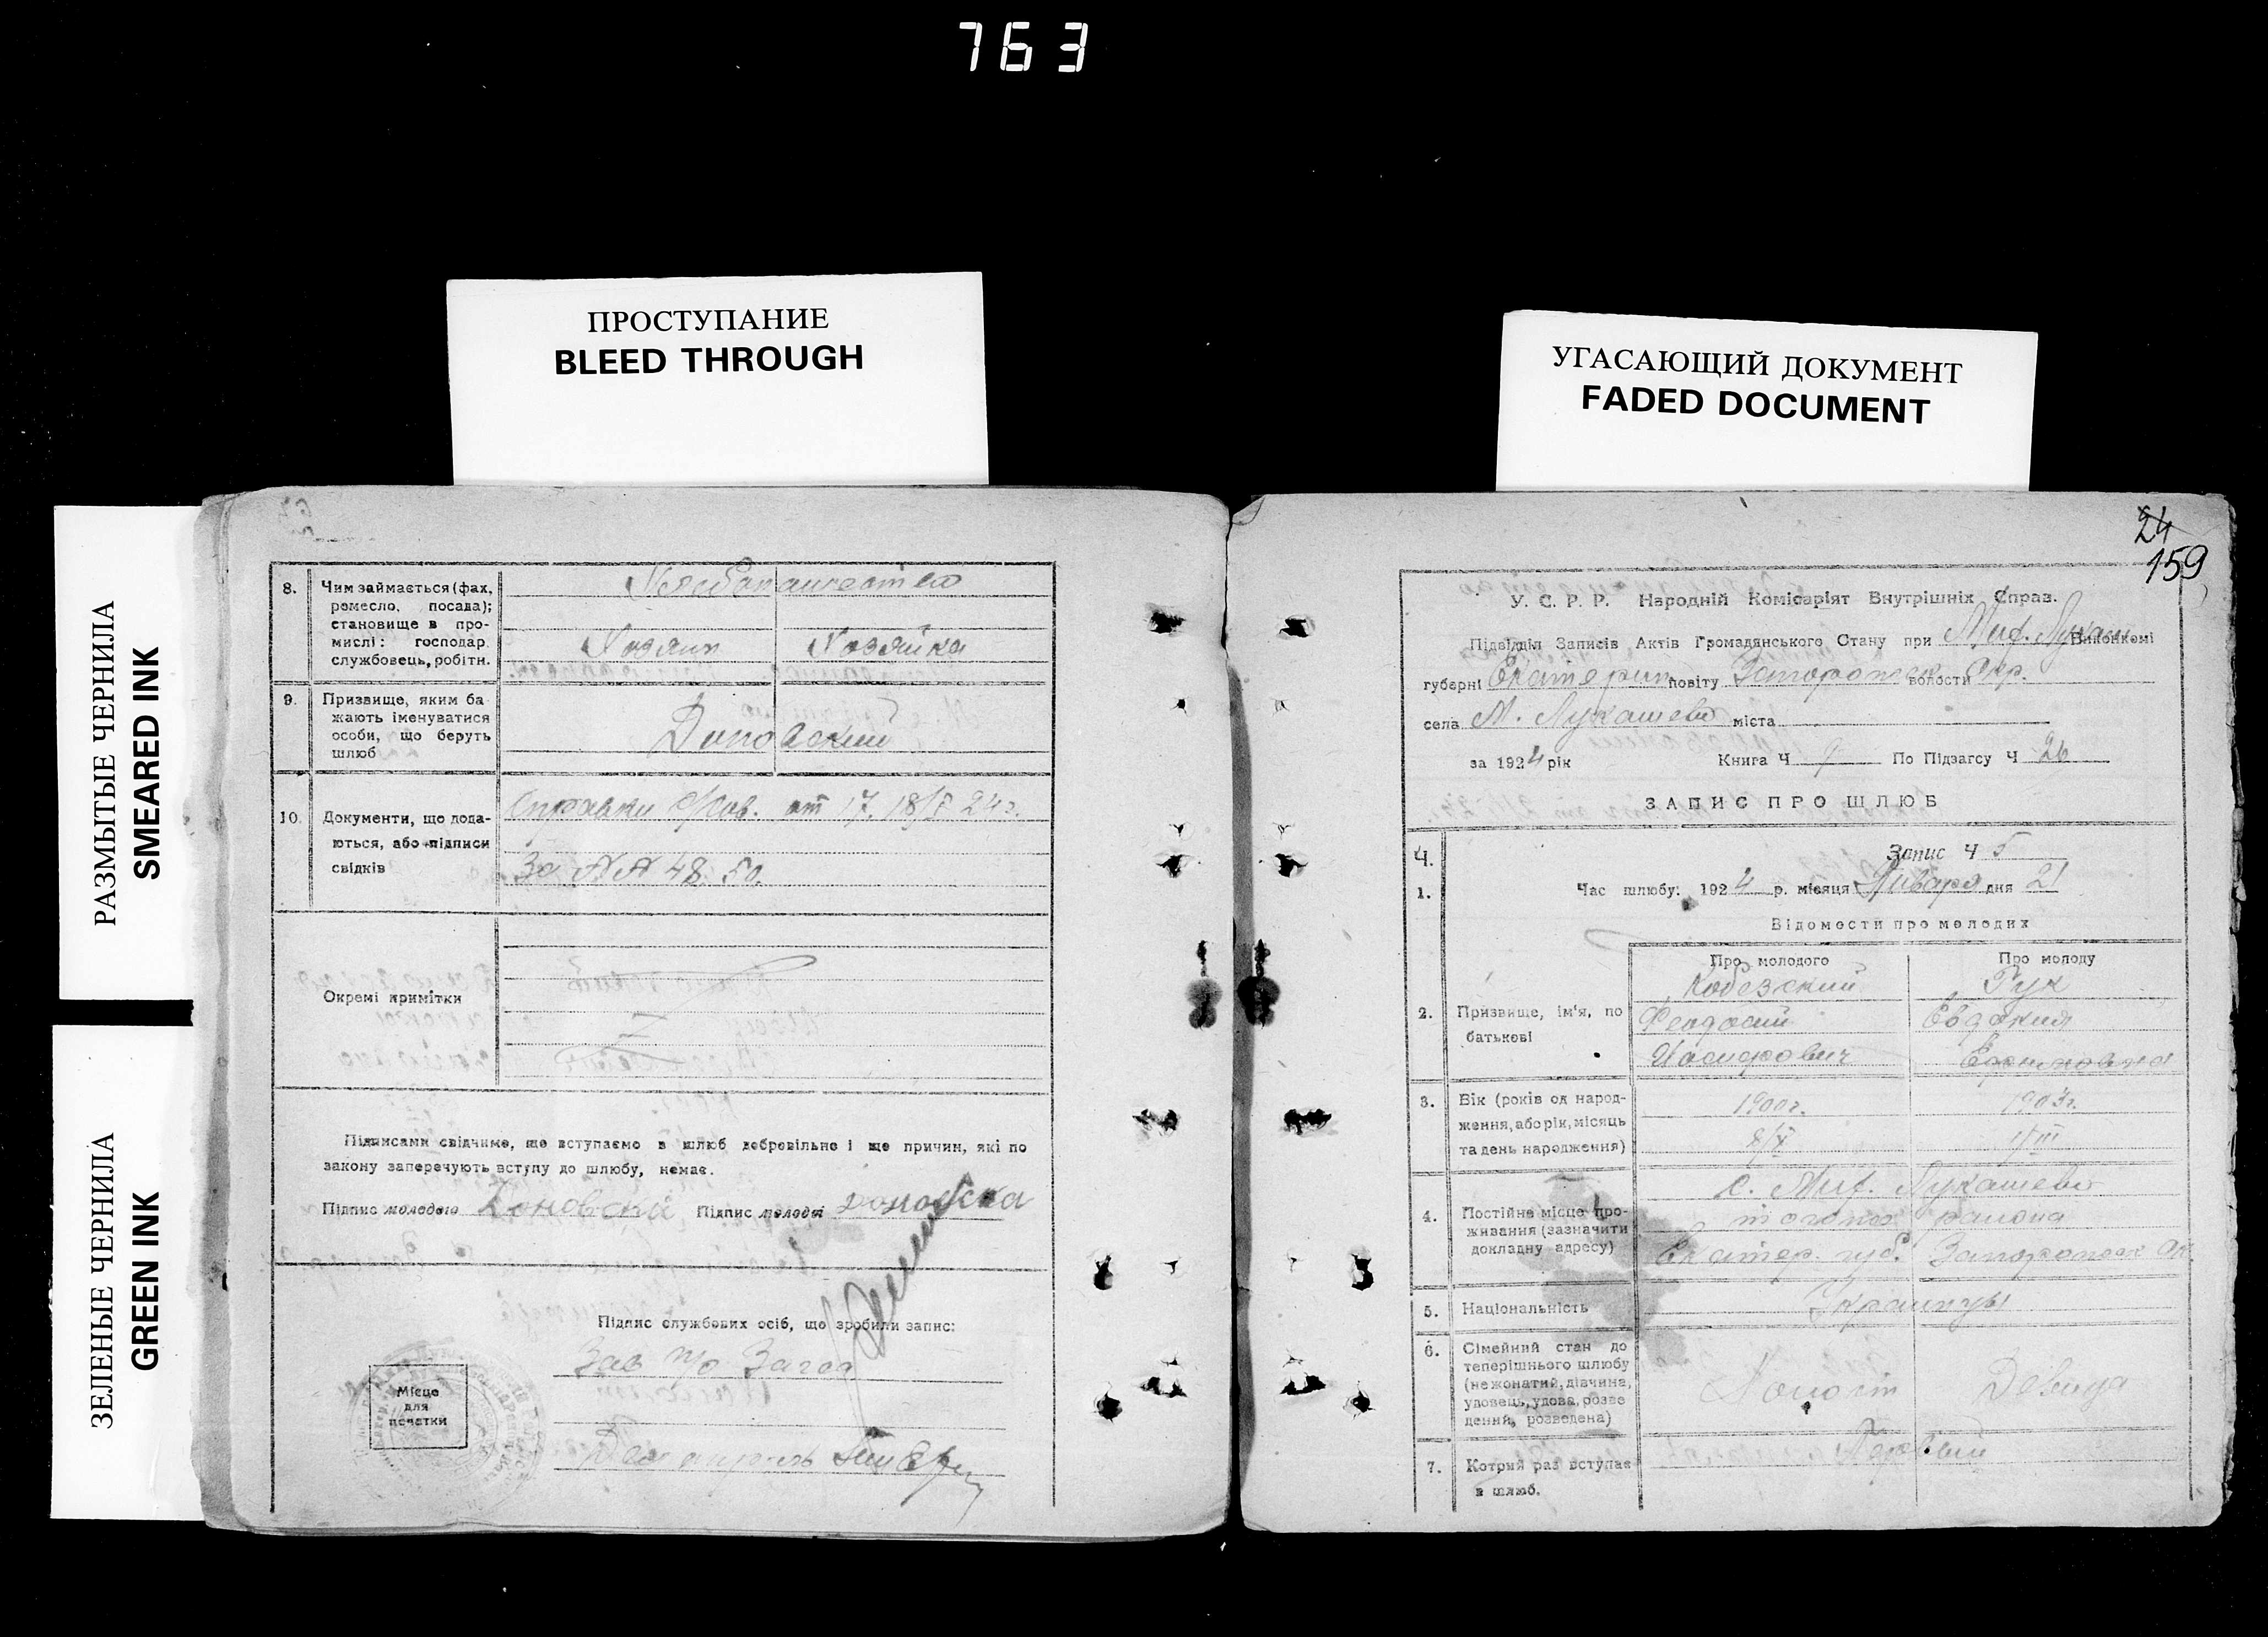 763
ПРОСТУПАНИЕ
BLEED THROUGH
УГАСАЮЩИЙ ДОКУМЕНТ
FADED DOCUMENT
РАЗМЫТЫЕ ЧЕРНИЛА
SMEARED INK
ЗЕЛЕНЫЕ ЧЕРНИЛА
GREEN INK
8. Чим займається (фах,
ремесло, посада);
становище в про-
мислі: господар
службовець, робітн.
Хлебопашество
Хозяин Хозяйка
9. Призвище, яким ба
жають іменуватися
особи, що беруть
шлюб
10. Документи, що дода-
ються, або підписи
свідків
Справки от 17. 18/I 24 г.
За №№ 48. 50.
Окремі примітки
Підписами свідчимо, що вступаємо в шлюб добровільно і що причин, які по
закону заперечують вступу до шлюбу, немає.
Підпис молодого Підпис молодої
Підпис службових осіб, що зробили запис:
Зав п/о Загса
Місце
для
печатки
24
159
У. С. Р. Р. Народній Комісаріят Внутрішніх Справ.
Підвідділ Записів Актів Громадянського Стану при Миф. Лукаш. Виконкомі
губерні Екатерин повіту Запорожск волости Окр.
села М. Лукашево міста
за 1924 рік Книга Ч По Підзагсу Ч 26
ЗАПИС ПРО ШЛЮБ
Ч. Запис Ч 5
1. Час шлюбу: 1924 р. місяця Января дня 21
Відомости про молодих
Про молодого Про молоду
2. Призвище, ім'я, по
батькові
Кобезский Рук
Феодосий Евдокия
Ефимовна
3. Вік (років од народ-
ження, або рік, місяць
та день народження)
1900 г. 1903 г.
8/X 1/III
4. Постійне місце про-
живання (зазначити
докладну адресу)
с. Миф. Лукашево
того же района
Екатер. губ. Запорожск Ок.
5. Національність
Украинцы
6. Сімейний стан до
теперішнього шлюбу
(нежонатий, дівчина,
удовець, удова, розве
дений, розведена)
Холост Девица
7. Котрий раз вступає
в шлюб.
Первый